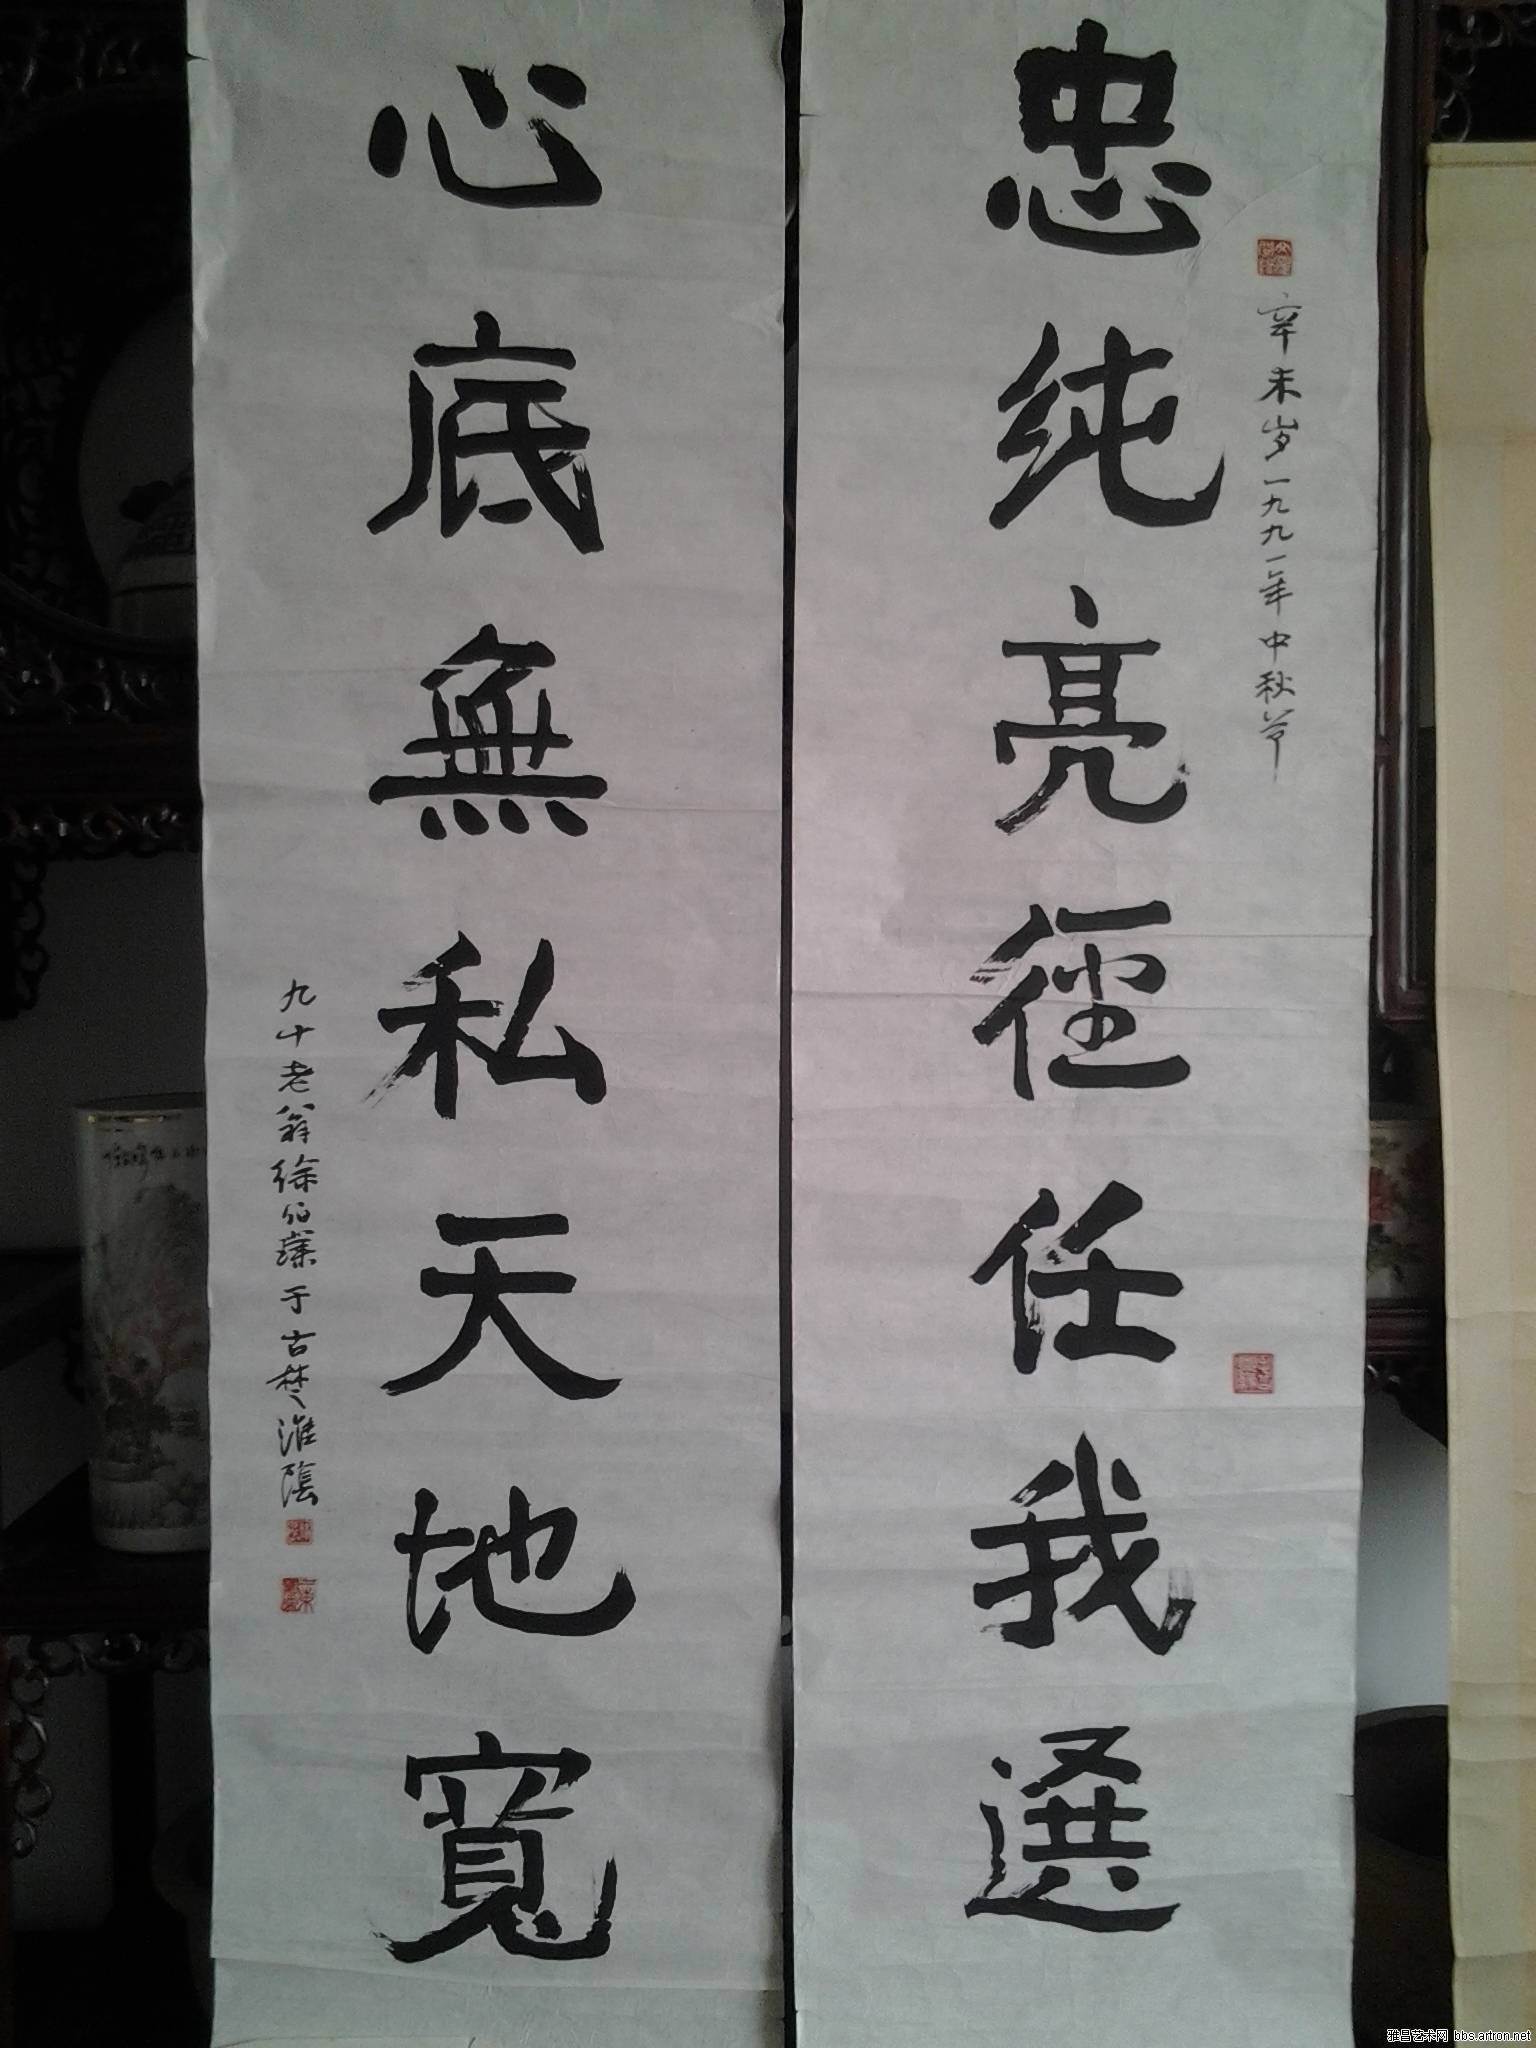 忠純亮徑任我選
辛未岁一九九一年中秋节
心底無私天地寬
九十老翁徐伯璞于古楚淮陰
雅昌艺术网 bbs.artron.net